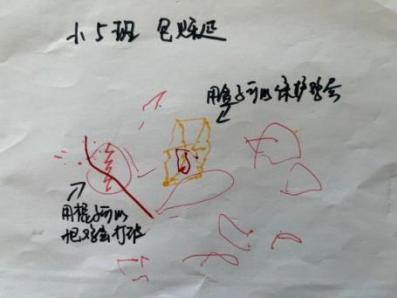 小5班 包烁延
用盒子可以保护鸡蛋
用棍子可以
把鸡蛋打破